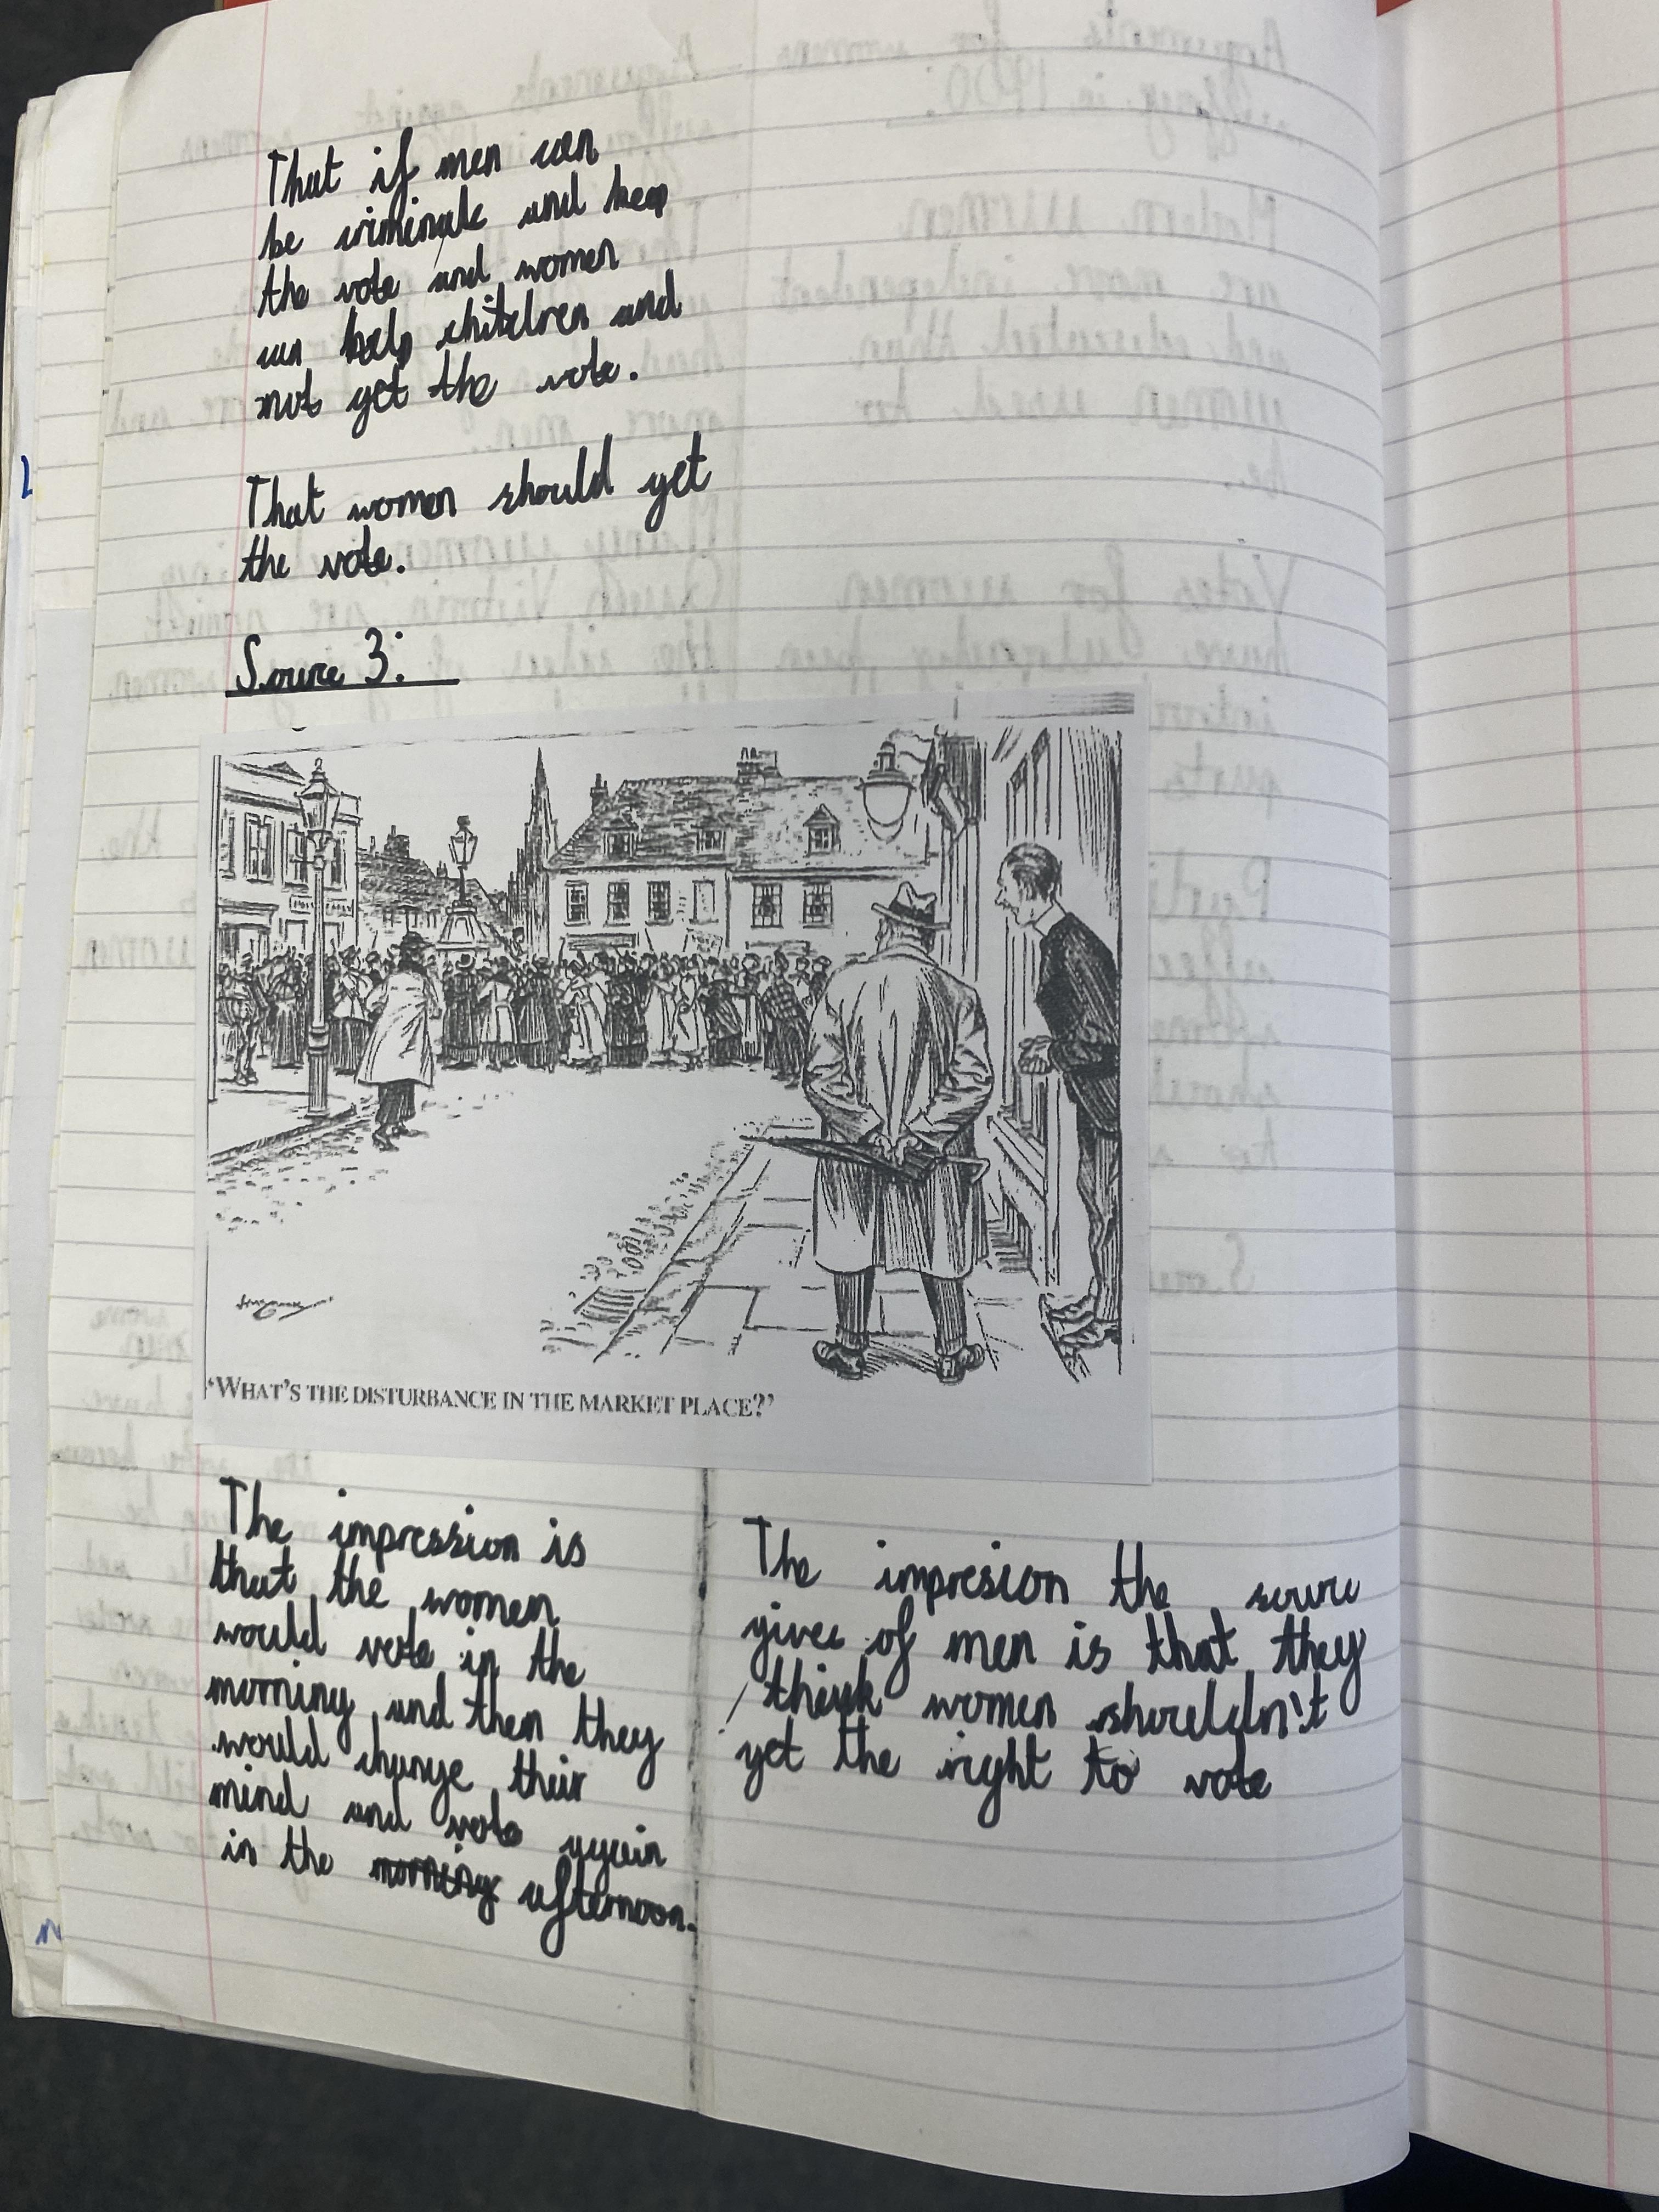 That if men can
be criminals and keep
the vote and women
can help chitelren and
not get the vote.
That women should get
the vote.
Source 3:
'WHAT'S THE DISTURBANCE IN THE MARKET PLACE?'
The impression is
that the women
would vote in the
morning and then they
would change their
mind and vote again
in the morning afternoon.
The impresion the source
gives of men is that they
think women shouldn't
get the right to vote